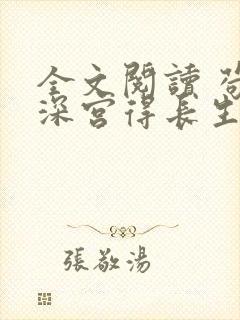 全文閱讀 苟
深宮得長生
張敬湯